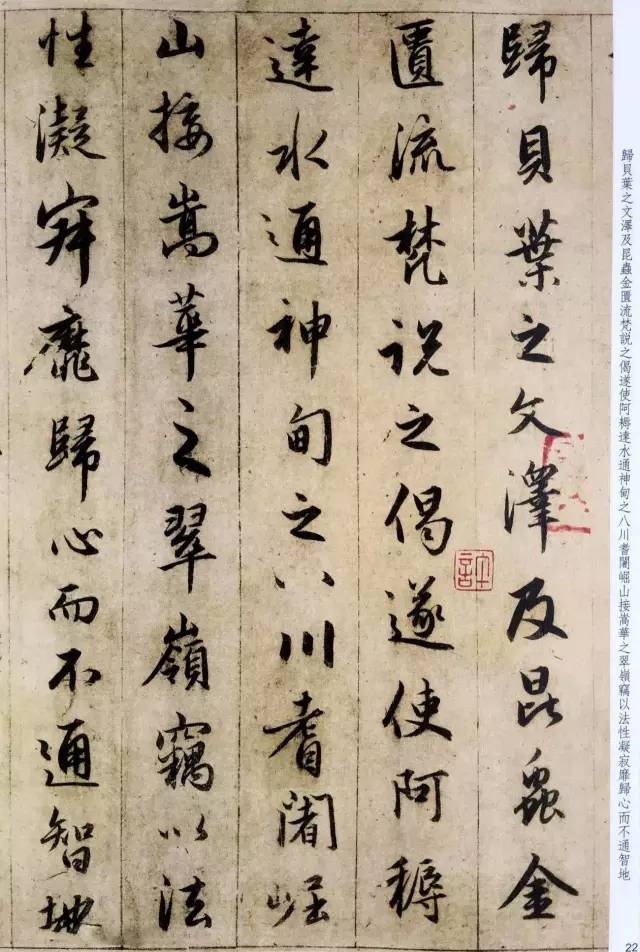 歸貝葉之文澤及昆蟲金匱流梵說之偈遂使阿耨達水通神甸之八川耆闍崛山接嵩華之翠嶺竊以法性凝寂靡歸心而不通智地
歸貝葉之文澤及昆蟲金
匱流梵説之偈遂使阿耨
達水通神甸之八川耆闍崛
山接嵩華之翠嶺竊以法
性凝寂靡歸心而不通智地
許
22